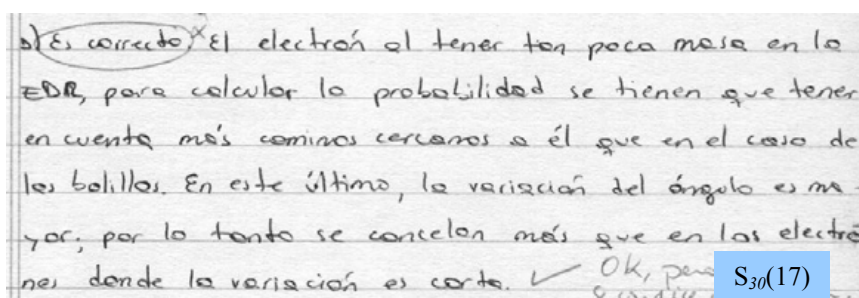 b) Es correcto, El electrón al tener tan poca masa en la
EDR, para calcular la probabilidad se tienen que tener
en cuenta más caminos cercanos a él que en el caso de
las bolillas. En este último, la variación del ángulo es ma-
yor, por lo tanto se cancelan más que en los electro
nes donde la variación es corta. ✓ OK, pero
S30(17)